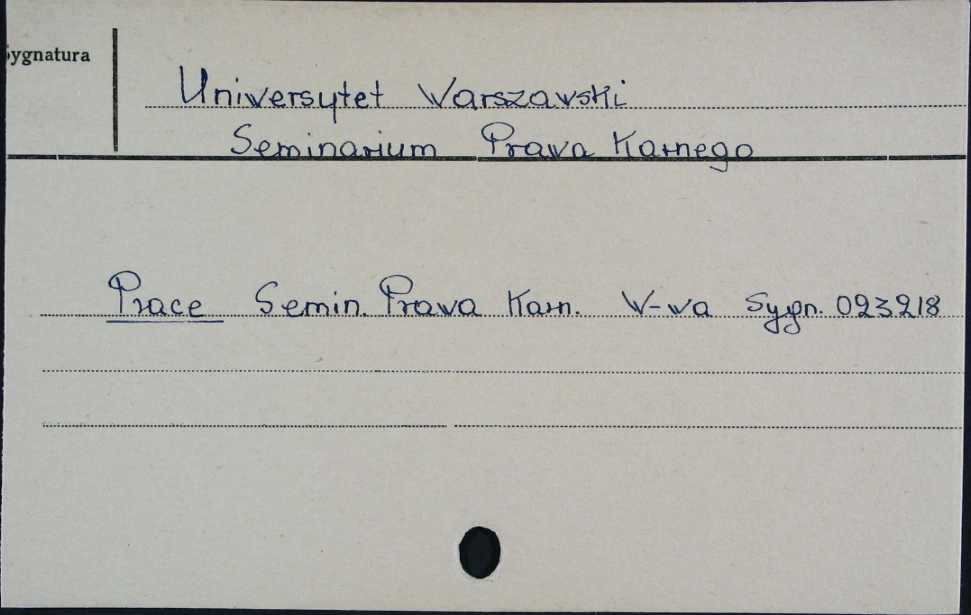 Sygnatura
Uniwersytet Warszawski
Seminarium Prawa Karnego
Prace Semin. Prawa Karn. W-wa Sygn. 023218